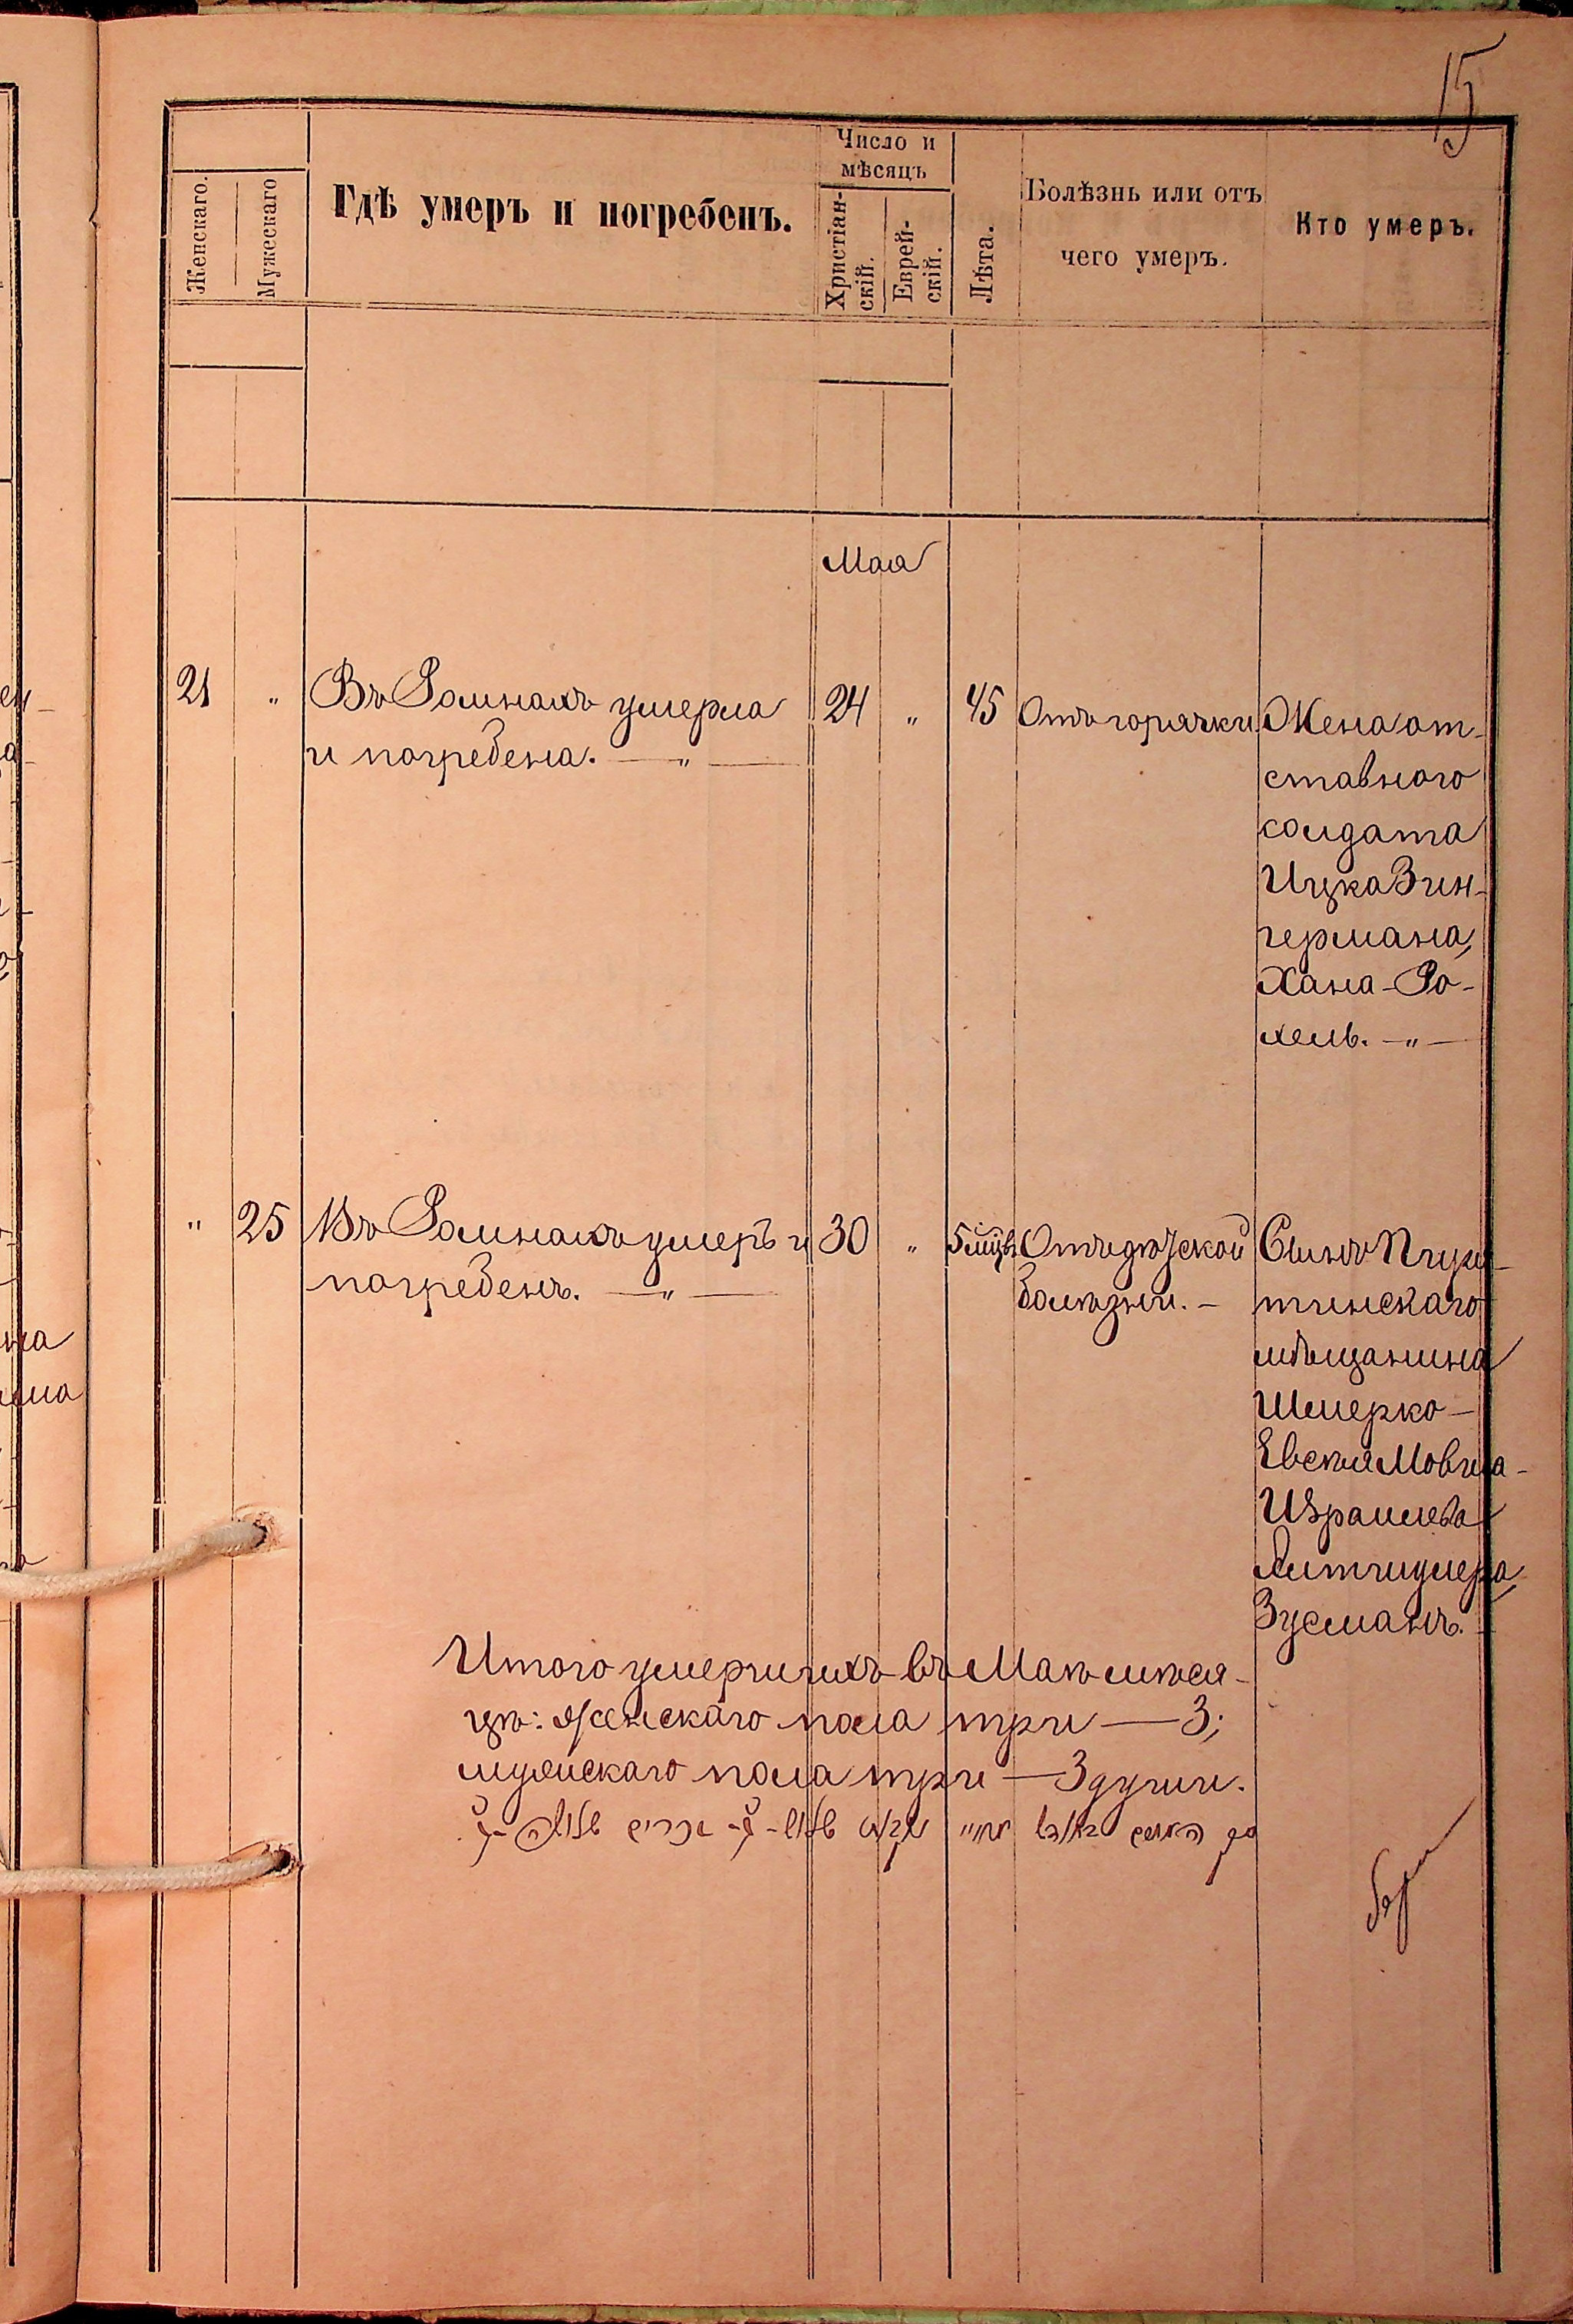 15
Женскаго.
Мужескаго
Гдѣ умеръ и погребенъ.
Число и
мѣсяцъ
Христіан-
скій.
Еврей-
скій.
Лѣта.
Болѣзнь или отъ
чего умеръ.
Кто умеръ.
Мая
21 " Въ Ромнахъ умерла 24 " 45 Отъ горячки
и погребена. — " —
Жена от-
ставного
солдата
Ицка Зин-
германа,
Хана-Ро-
хель. — " —
" 25 Въ Ромнахъ умеръ и 30 " 5 мцвъ Отъ дѣтской
погребенъ. — " — болѣзни. —
Сынъ
тинскаго
мѣщанина
Шмерко-
Евсѣя Мовша-
Израилева
Зусманъ.
Итого умершихъ въ Маѣ мѣся-
цѣ: женскаго пола три — 3;
мужескаго пола три — 3 души.